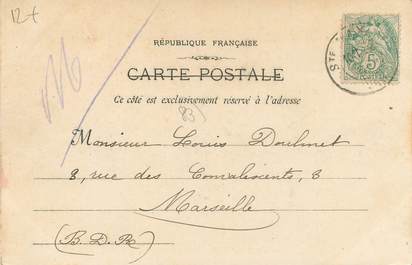 12+
RÉPUBLIQUE FRANÇAISE
CARTE POSTALE
Ce côté est exclusivement réservé à l'adresse
83)
Monsieur Louis Doulmet
8, rue des Convalescents, 8
Marseille
(B. D. R)
STE
5